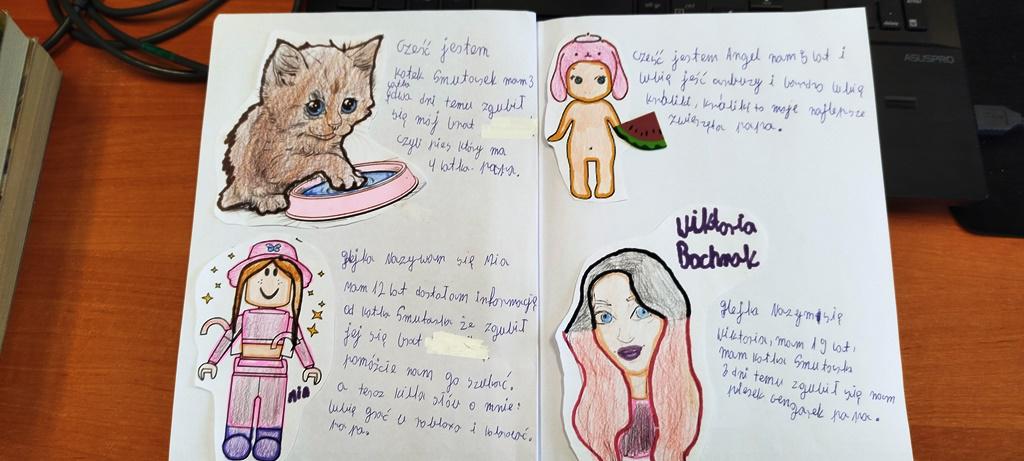 cześć jestem
kotek Smutasek mam 3
latka
dwa dni temu zgubił
się mój brat
czyli pies który ma
4 latka. papa.
cześć jestem Angel mam 5 lat i
lubię jeść arbuzy i bardzo lubię
króliki, króliki to moje najlepsze
zwierzęta papa.
Hejka Nazywam się Mia
Mam 12 lat dostałam informację
od kotka Smutaska że zgubił
jej się brat
pomóżcie nam go szukać.
a teraz kilka słów o mnie:
lubię grać w robloxa i kolorować.
papa.
mia
Wiktoria
Bochnak
Hejka Nazym się
Wiktoria, mam 19 lat,
mam kotka Smutaska
3 dni temu zgubił się nam
piesek papa.
ASUSPRO